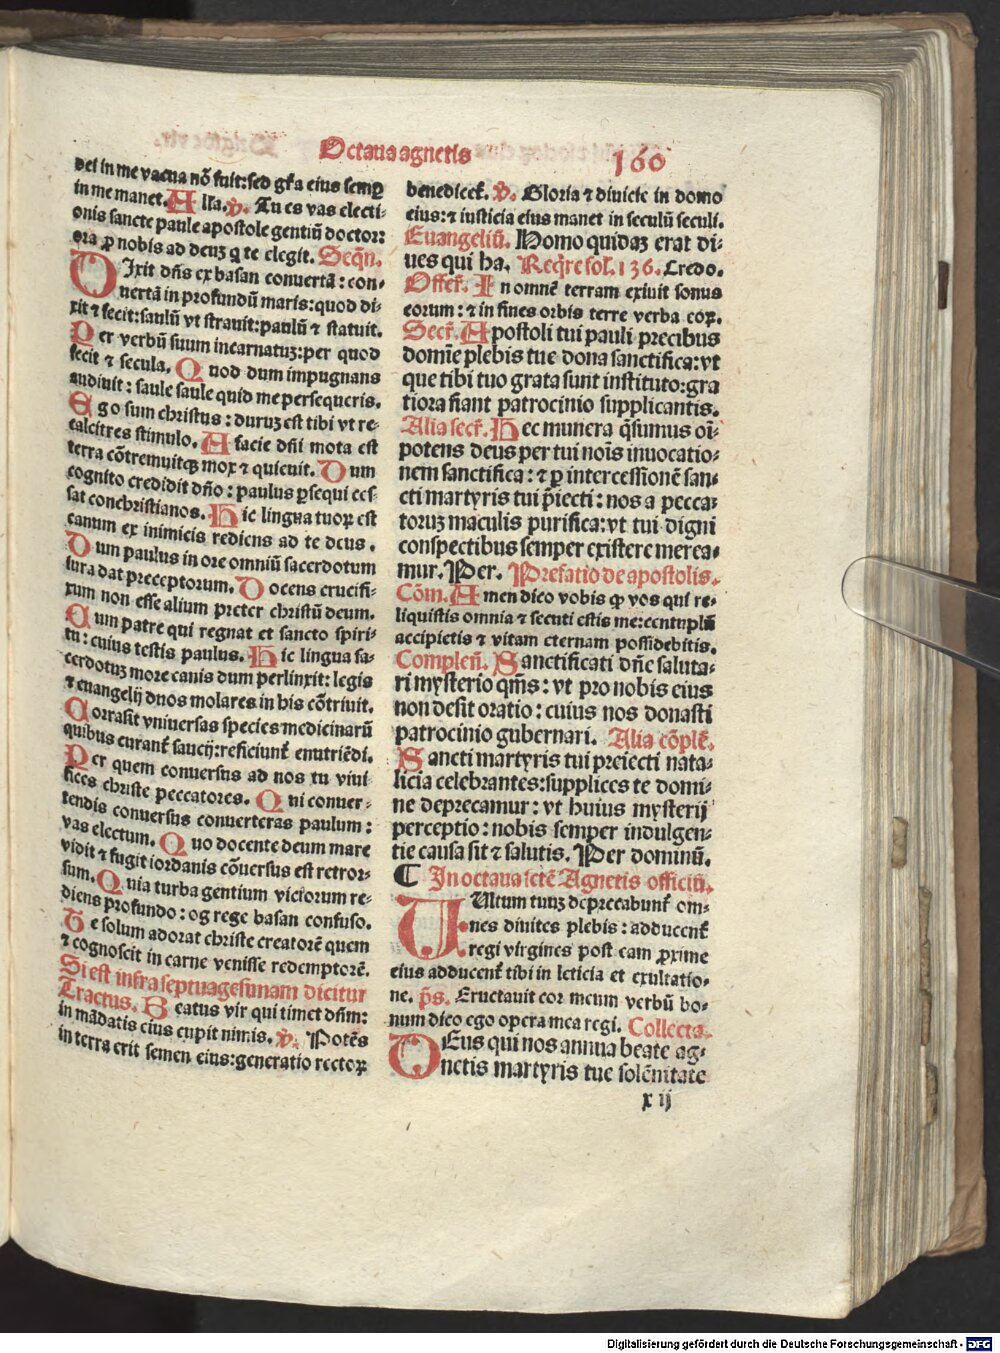 Octaua agnetis 160
dei in me vacua nō fuit: sed gr̄a eius semꝑ
in me manet. Alla. ꝟ. Tu es vas electi⸗
onis sancte paule apostole gentiū doctor:
ora ꝓ nobis ad deuꝫ q te elegit. Seqn̄.
Dixit dn̄s ex basan conuertā: con⸗
uertā in profundū maris: quod di⸗
xit ⁊ fecit: saulū vt strauit: paulū ⁊ statuit.
Per verbū suum incarnatuꝫ: per quod
fecit ⁊ secula. Quod dum impugnans
audiuit: saule saule quid me persequeris.
Ego sum christus: duruꝫ est tibi vt re⸗
calcitres stimulo. A facie dn̄i mota est
terra cōtremuitqꝫ mox ⁊ quieuit. Dum
cognito credidit dn̄o: paulus ꝑsequi ces⸗
sat conchristianos. Hic lingua tuoꝝ est
canum ex inimicis rediens ad te deus.
Dum paulus in ore omniū sacerdotum
iura dat preceptorum. Docens crucifi⸗
xum non esse alium preter christū deum.
Cum patre qui regnat et sancto spiri⸗
tu: cuius testis paulus. Hic lingua sa⸗
cerdotuꝫ more canis dum perlinxit: legis
⁊ euangelij duos molares in his cōtriuit.
Corrasit vniuersas species medicinarū
quibus curant̄ saucij: reficiunt̄ enutriēdi.
Per quem conuersus ad nos tu viui⸗
fices christe peccatores. Qui conuer⸗
tendis conuersus conuerteras paulum:
vas electum. Quo docente deum mare
vidit ⁊ fugit iordanis cōuersus est retror⸗
sum. Quia turba gentium victorum re⸗
diens profundo: og rege basan confuso.
Te solum adorat christe creatorē quem
⁊ cognoscit in carne venisse redemptorē.
Si est infra septuagesimam dicitur
Tractus. Beatus vir qui timet dn̄m:
in mādatis eius cupit nimis. ꝟ. Potēs
in terra erit semen eius: generatio rectoꝝ
benedicet̄. ꝟ. Gloria ⁊ diuicie in domo
eius: ⁊ iusticia eius manet in seculū seculi.
Euangeliū. Homo quidaꝫ erat di⸗
ues qui ha. Reqr̄e fol. 136. Credo.
Offer̄. In omnē terram exiuit sonus
eorum: ⁊ in fines orbis terre verba eoꝝ.
Secr̄. Apostoli tui pauli precibus
domīe plebis tue dona sanctifica: vt
que tibi tuo grata sunt instituto: gra
tiora fiant patrocinio supplicantis.
Alia secr̄. Hec munera q̄sumus oī⸗
potens deus per tui noīs inuocatio⸗
nem sanctifica: ⁊ ꝑ intercessionē san⸗
cti martyris tui p̄iecti: nos a pecca⸗
toruꝫ maculis purifica: vt tui digni
conspectibus semper existere merea⸗
mur. Per. Prefatio de apostolis.
Cōm. Amen dico vobis ꝙ vos qui re⸗
liquistis omnia ⁊ secuti estis me: centuplū
accipietis ⁊ vitam eternam possidebitis.
Complen̄. Sanctificati dn̄e saluta⸗
ri mysterio qm̄s: vt pro nobis eius
non desit oratio: cuius nos donasti
patrocinio gubernari. Alia cōplē.
Sancti martyris tui preiecti nata⸗
licia celebrantes: supplices te domi⸗
ne deprecamur: vt huius mysterij
perceptio: nobis semper indulgen⸗
tie causa sit ⁊ salutis. Per dominū.
¶ In octaua sctē Agnetis officiū.
Vultum tuuꝫ deprecabunt̄ om⸗
nes diuites plebis: adducent̄
regi virgines post eam ꝓxime
eius adducent̄ tibi in leticia et exultatio⸗
ne. p̄s. Eructauit cor meum verbū bo⸗
num dico ego opera mea regi. Collecta.
Deus qui nos annua beate ag⸗
netis martyris tue solēnitate
x ij
Digitalisierung gefördert durch die Deutsche Forschungsgemeinschaft - DFG